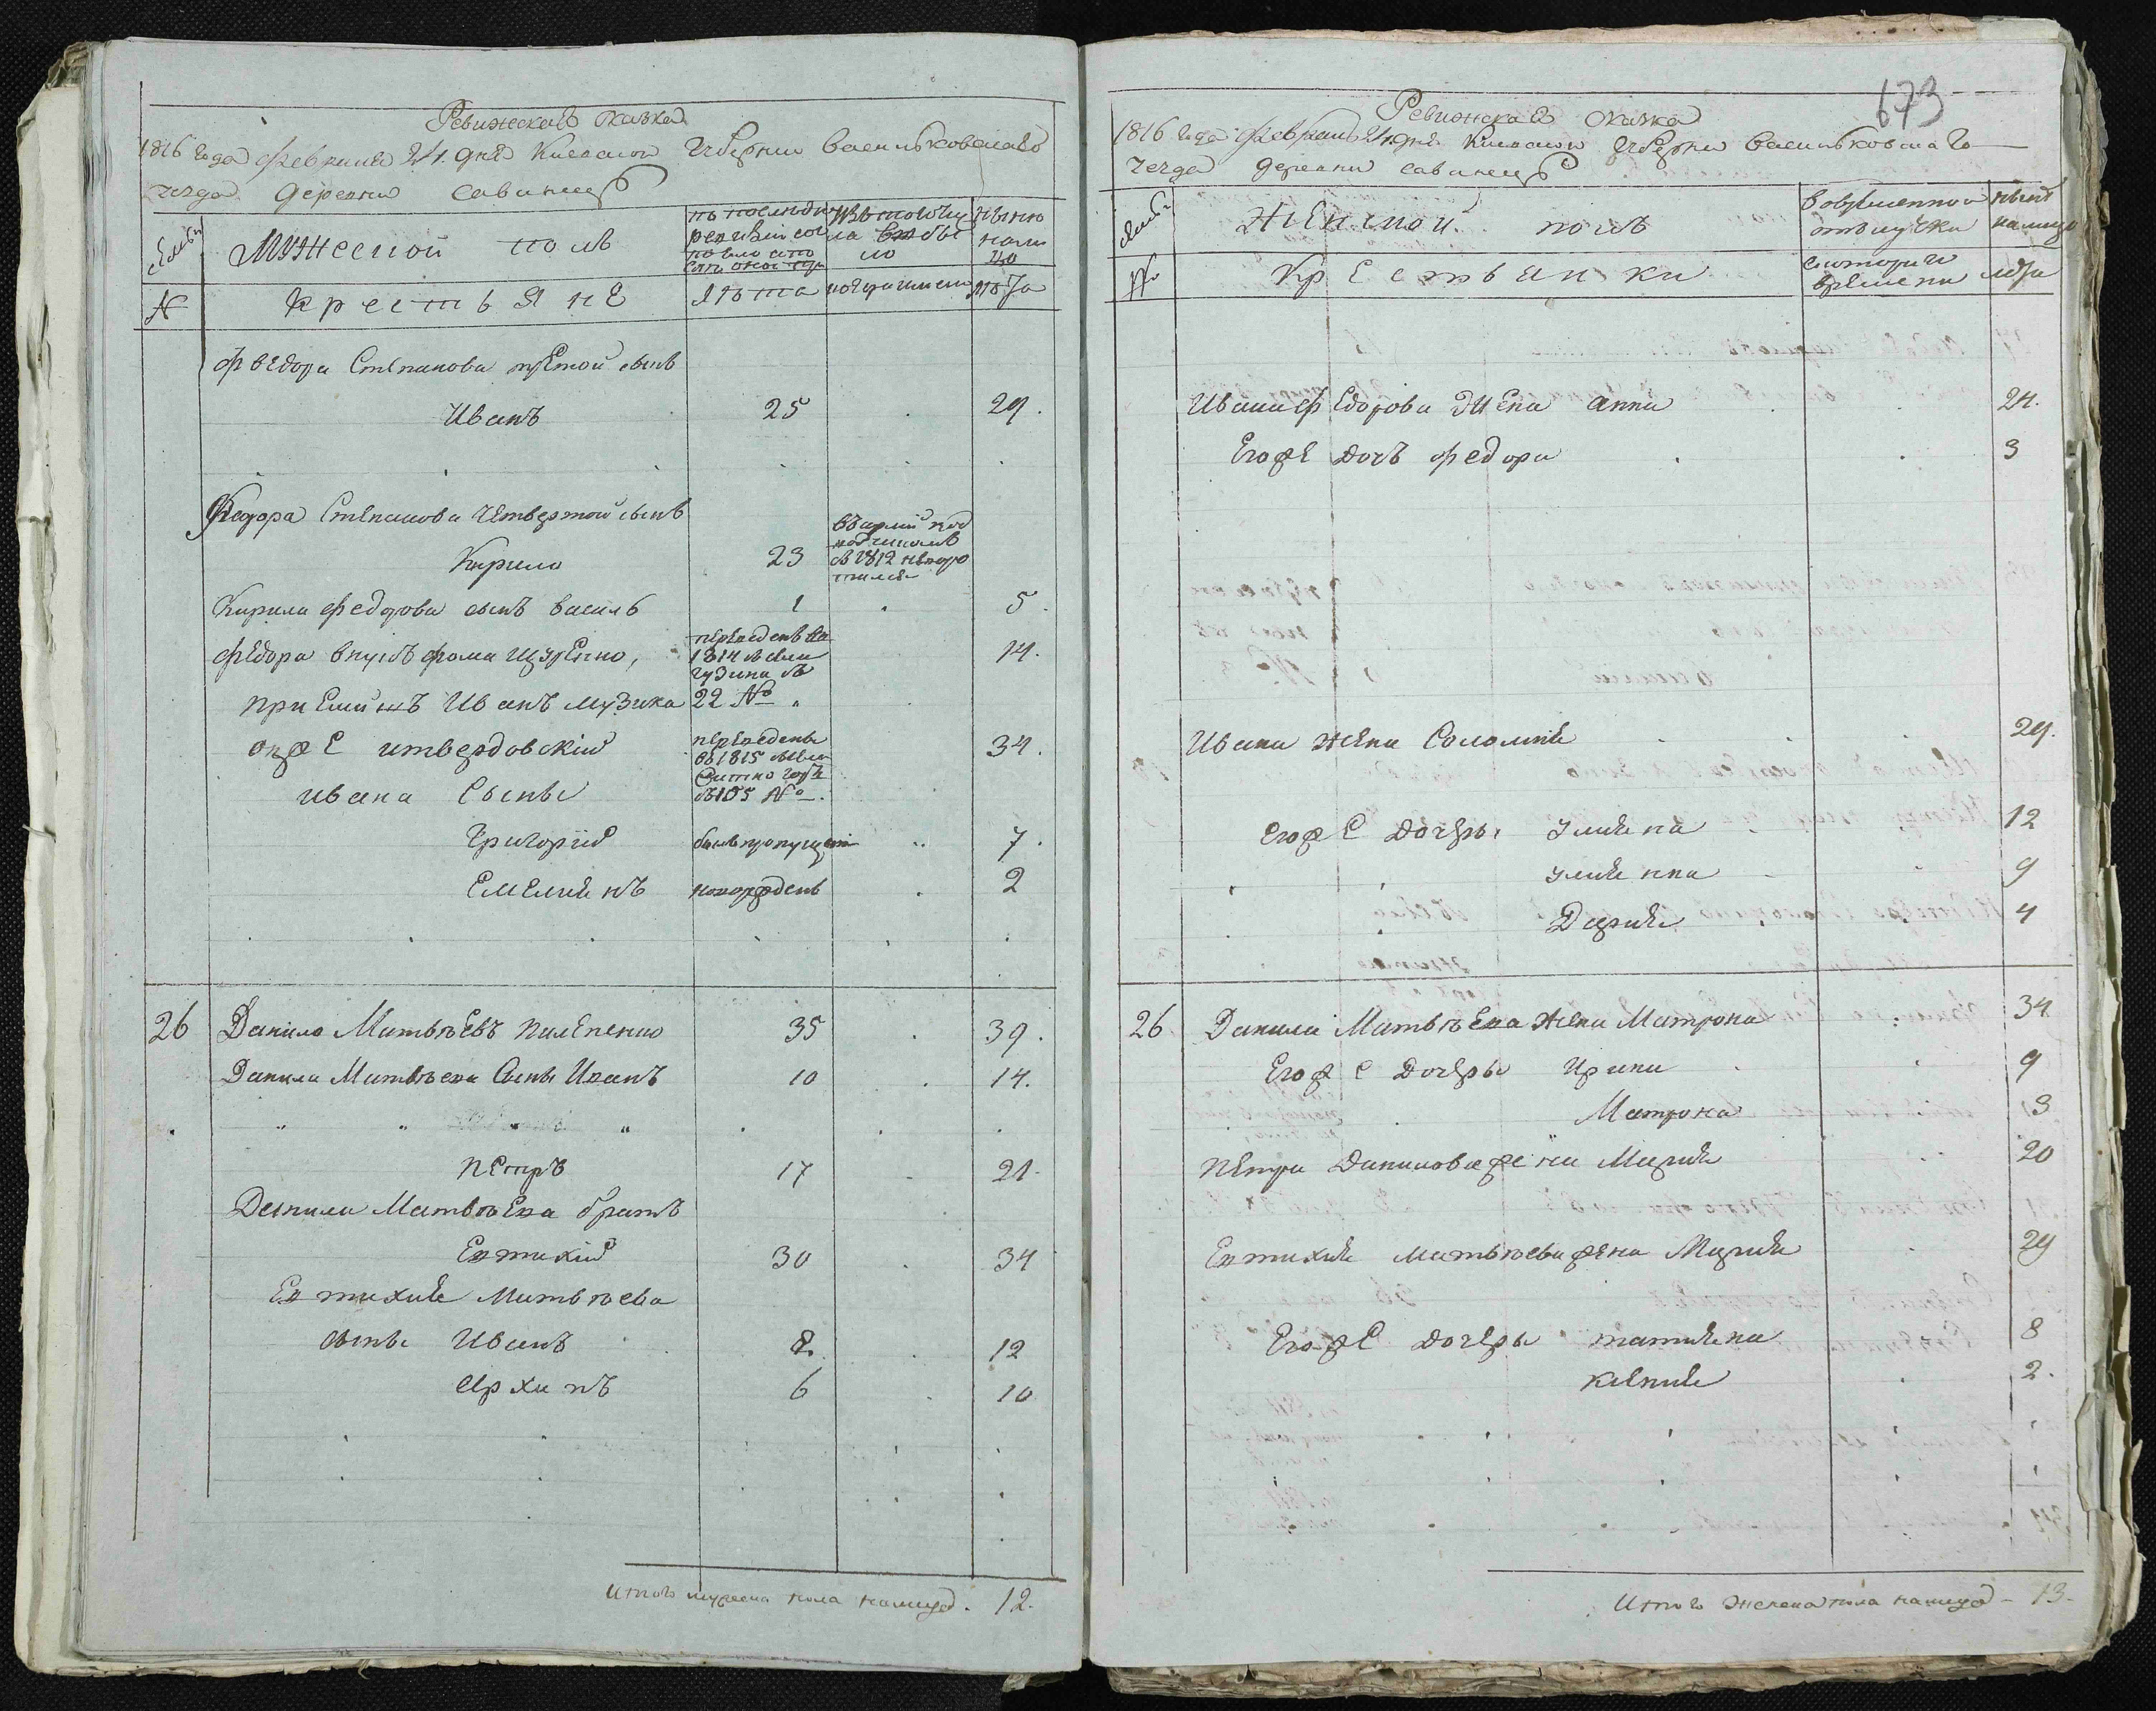 Ревижская сказка
1816 года февраля 24 дня Киевской Губернии васильковскаго
уезда деревни савинецъ
семьи
Мужеской полъ
по последней
ревизии сос
тояло и по
слѣ оной
изъ того чи
сла выбы
ло
ныне
нали
цо
№
крестьянЕ
лѣта
когда именно
лѣта
фЕдора Степанова третой сынъ
Иванъ 25 29.
Федора Степанова четвертой сынъ
Кирило 23
въ 1812
Кирила федорова сынъ василь 1 5.
фЕдора внукъ фома ищЕнко, 14.
переведенъ
1814
22 №
приЕмишъ Иванъ музика
онжЕ 34.
переведенъ
въ 1815
№ 105
ивана Сыны
Григорий былъ пропущен 7.
ЕмЕлиянъ новорожденъ 2
26 Данило МатвѣЕвъ пилЕпенко 35 39.
Данила Матвѣева Сыны Иванъ 10 14.
пЕтръ 17 21.
Данила МатвѣЕва братъ
Евтихий 30 34
Евтихия Матвѣева
сыны Иванъ 8. 12
Архипъ 6 10
Итого мужеска пола налицо. 12.
673
Ревижская сказка
1816 года февраля 24 дня Киевской Губернии васильковскаго
уезда деревни савинецъ
семьи
ЖЕнской полъ
во временной
отлучки
ныне
налицо
№
КрЕстьянки
с котораго
времени
лѣта
Ивана фЕдорова жЕна анна 24.
ЕгожЕ дочъ федора 3
Ивана жена Соломия 29.
ЕгожЕ дочЕры улияна 12
улиянна 9
Дария 4
26 Данила МатвѣЕва жена Матрона 34
Егоже дочЕры Ирина 9
Матрона 3
пЕтра Данилова жена Мария 20
Евтихия матвѣева жена Мария 29
ЕгожЕ дочЕры татияна 8
ксЕния 2.
Итого женска пола налицо - 13.